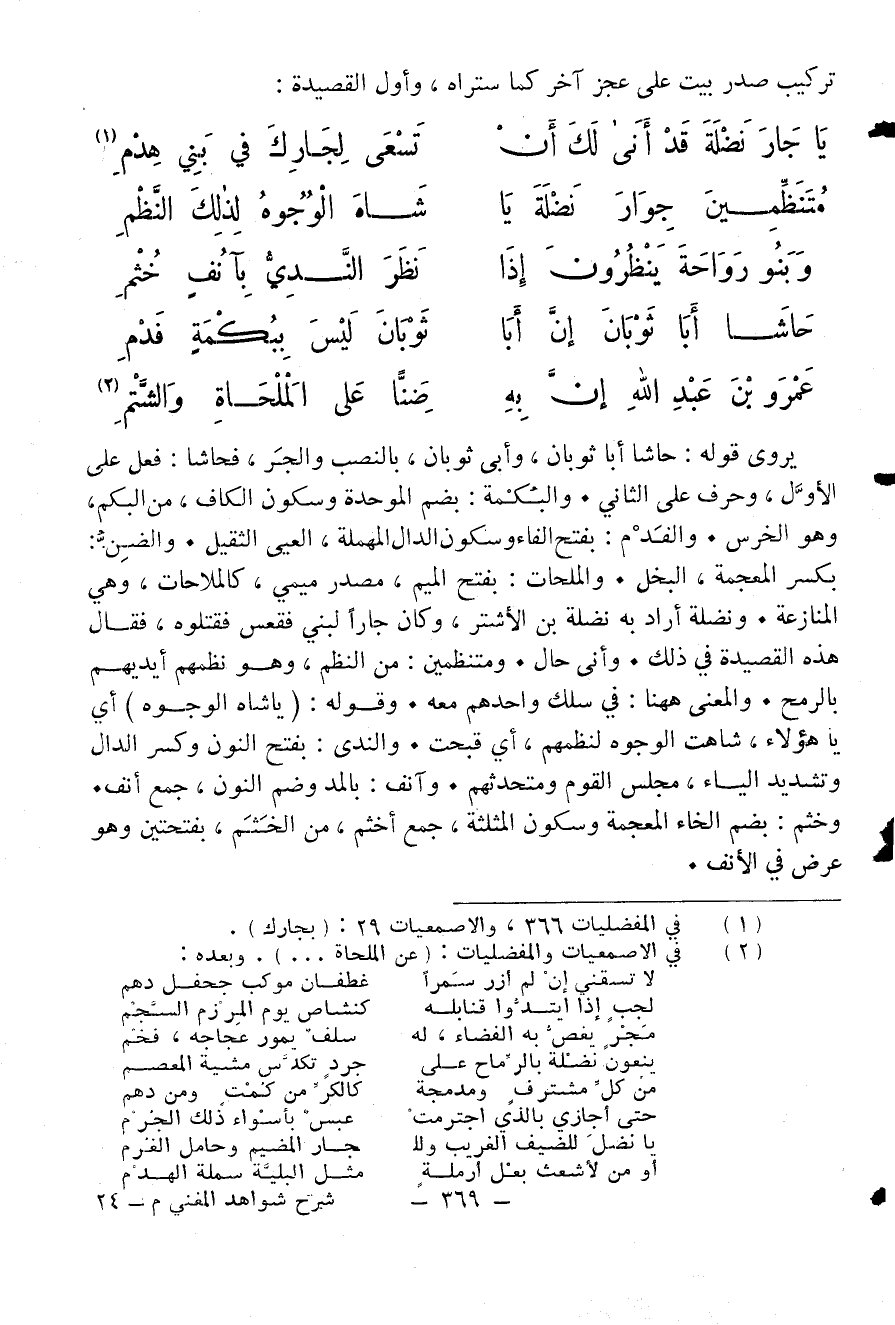 تركيب صدر بيت على عجز آخر كما ستراه ، وأول القصيدة :
يَا جَارَ نَضْلَةَ قَدْ أَنَى لَكَ أَنْ تَسْعَى لِجَارِكَ في بَنِي هِدْمِ (١)
مُتَنَظِّمِينَ جِوَارَ نَضْلَةَ يَا شَاهَ الْوُجُوهُ لِذٰلِكَ النَّظْمِ
وَبَنُو رَوَاحَةَ يَنْظُرُونَ إِذَا نَظَرَ النَّدِيُّ بِآنُفٍ خُثْمِ
حَاشَا أَبَا ثَوْبَانَ إِنَّ أَبَا ثَوْبَانَ لَيْسَ بِبُكْمَةٍ فَدْمِ
عَمْرَو بْنَ عَبْدِ اللهِ إِنَّ بِهِ ضِنًّا عَلَى الْمَلْحَاةِ وَالشَّتْمِ (٢)
يروى قوله : حاشا أبا ثوبان ، وأبى ثوبان ، بالنصب والجَر ، فحاشا : فعل على
الأوَّل ، وحرف على الثاني • والبُكْمة : بضم الموحدة وسكون الكاف ، من البكم،
وهو الخرس • والفَدْم : بفتح الفاء وسكون الدال المهملة ، العيى الثقيل • والضِنّ :
بكسر المعجمة ، البخل • والملحات : بفتح الميم ، مصدر ميمي ، كالملاحات ، وهي
المنازعة • ونضلة أراد به نضلة بن الأشتر ، وكان جاراً لبني فقعس فقتلوه ، فقال
هذه القصيدة في ذلك • وأنى حال • ومتنظمين : من النظم ، وهو نظمهم أيديهم
بالرمح • والمعنى ههنا : في سلك واحدهم معه • وقوله : ( ياشاه الوجوه ) أي
يا هؤلاء ، شاهت الوجوه لنظمهم ، أي قبحت • والندى : بفتح النون وكسر الدال
وتشديد الياء ، مجلس القوم ومتحدثهم • وآنف : بالمد وضم النون ، جمع أنف•
وخثم : بضم الخاء المعجمة وسكون المثلثة ، جمع أخثم ، من الخَثَم ، بفتحتين وهو
عرض في الأنف •
( ١ ) في المفضليات ٣٦٦ ، والاصمعيات ٢٩ : ( بجارك ) .
( ٢ ) في الاصمعيات والمفضليات : ( عن الملحاة ... ) . وبعده :
لا تسقني إنْ لم أزر سَمَراً غطفان موكب جحفل دهم
لجبٍ إذا ابتدُّوا قنابله كنشاص يوم المِرْزم السَّجْم
مَجْرٍ يغصُّ به الفضاء ، له سلفٌ يمور عجاجه ، فخْم
ينعون نضْلة بالرِّماح على جردٍ تكدَّس مشية العصم
من كلِّ مشترفٍ ومدمجة كالكرِّ من كُمْتٍ ومن دهم
حتى أجازي بالذي اجترمتْ عبسٌ بأسْواء ذلك الجُرْم
يا نضلَ للضيف الغريب وللـ جار المضيم وحامل الغرم
أو من لأشعث بعل أرملةٍ مثل البليَّة سملة الهدْم
– ٣٦٩ – شرح شواهد المغني م – ٢٤